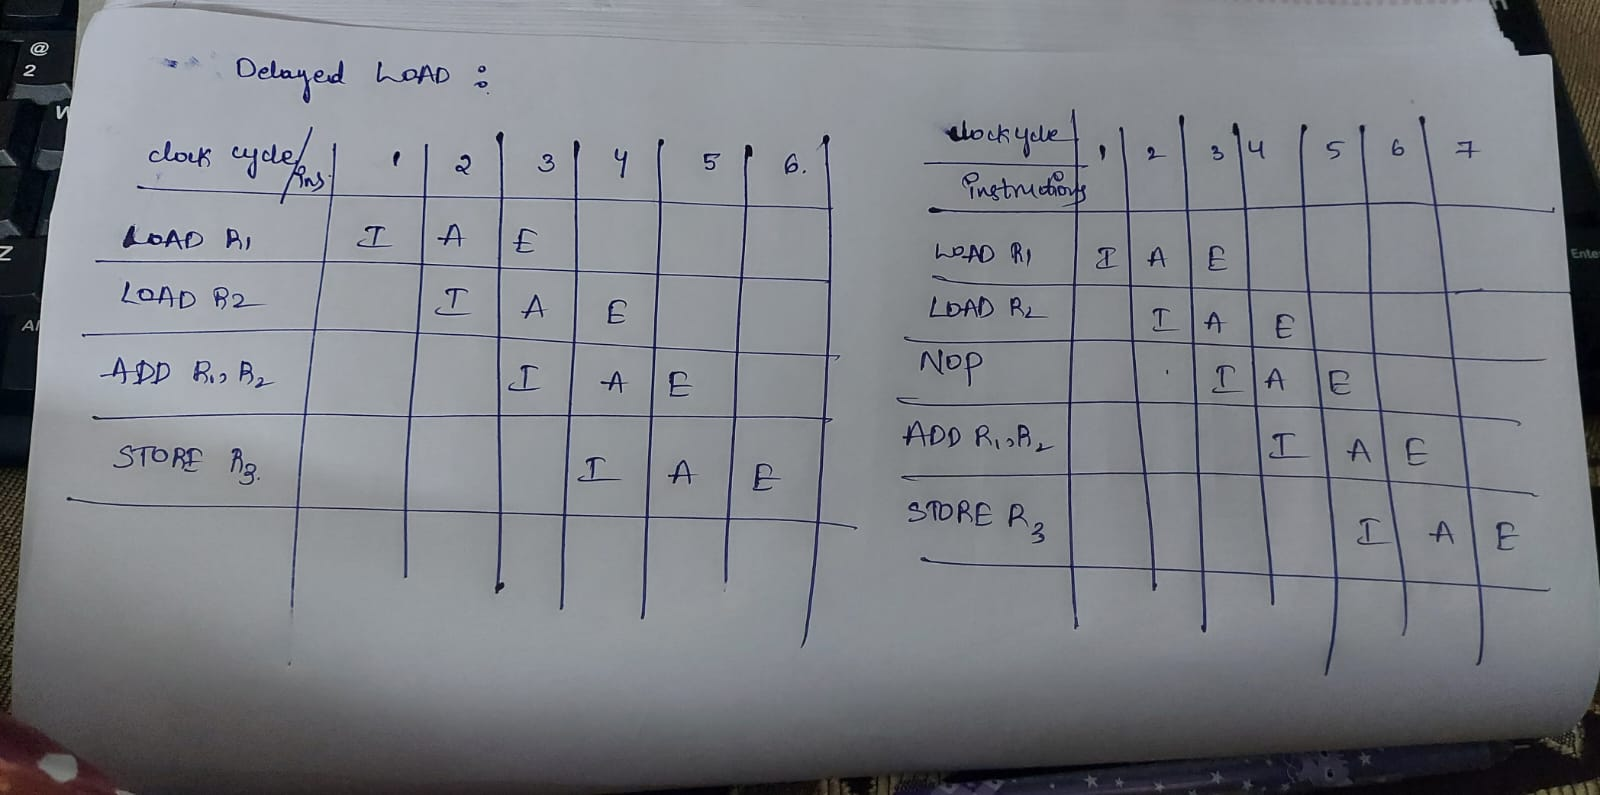 Delayed LOAD :
clock cycle/Ins. 1 2 3 4 5 6.
LOAD R1 I A E
LOAD R2 I A E
ADD R1, R2 I A E
STORE R3. I A E
clockycle 1 2 3 4 5 6 7
instructions
LOAD R1 I A E
LOAD R2 I A E
NOP I A E
ADD R1, R2 I A E
STORE R3 I A E
@
2
Z
Enter